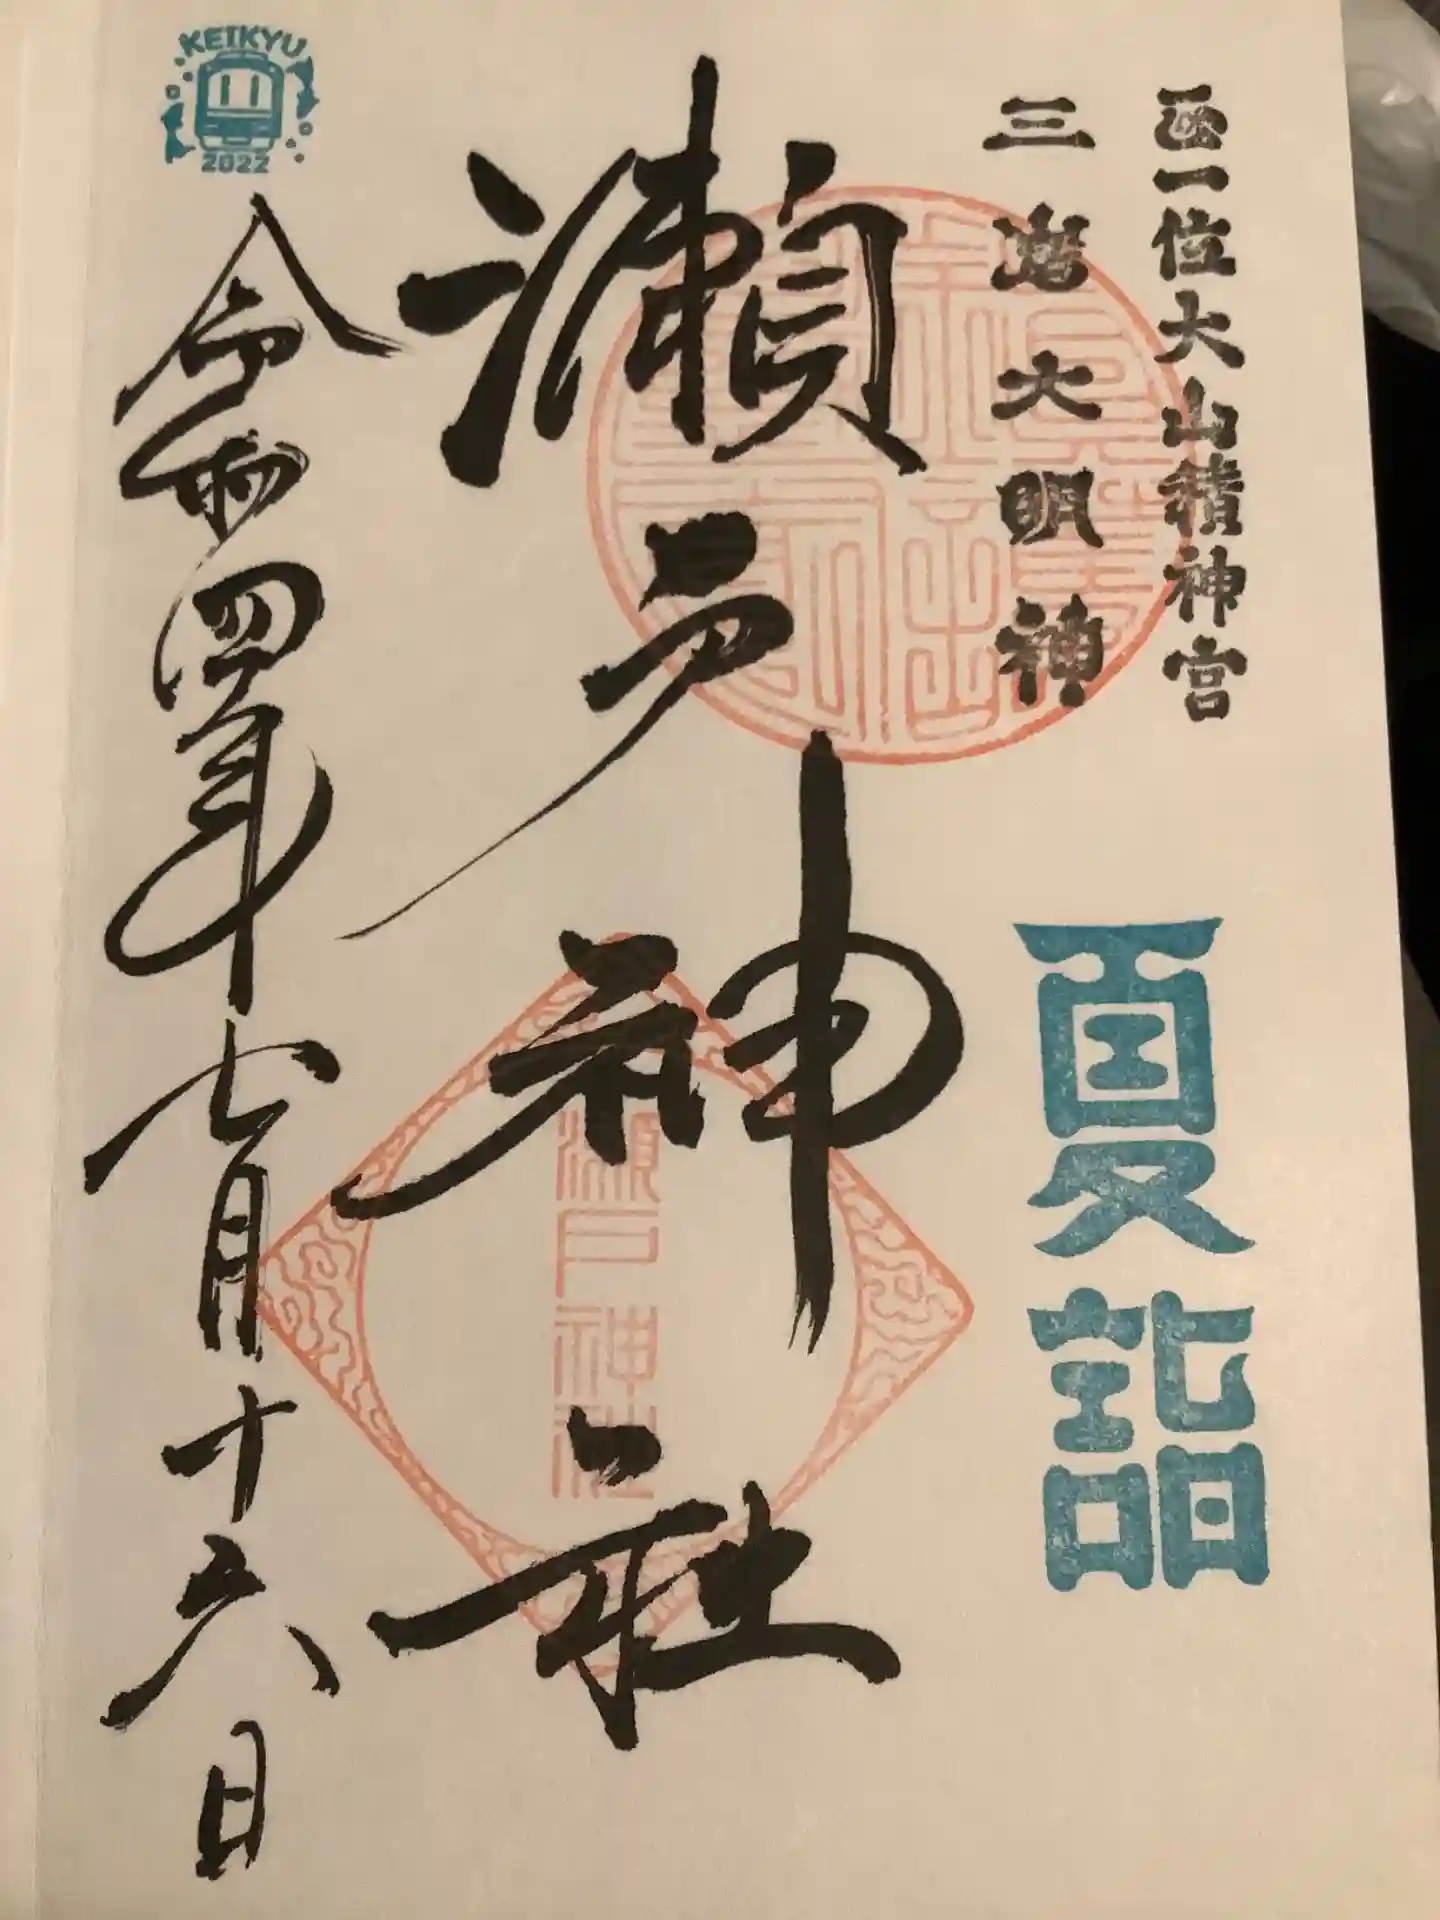 正一位大山積神宮
三嶌大明神
夏詣
瀬戸神社
瀬戸神社
KEIKYU
2022
令和四年七月十六日